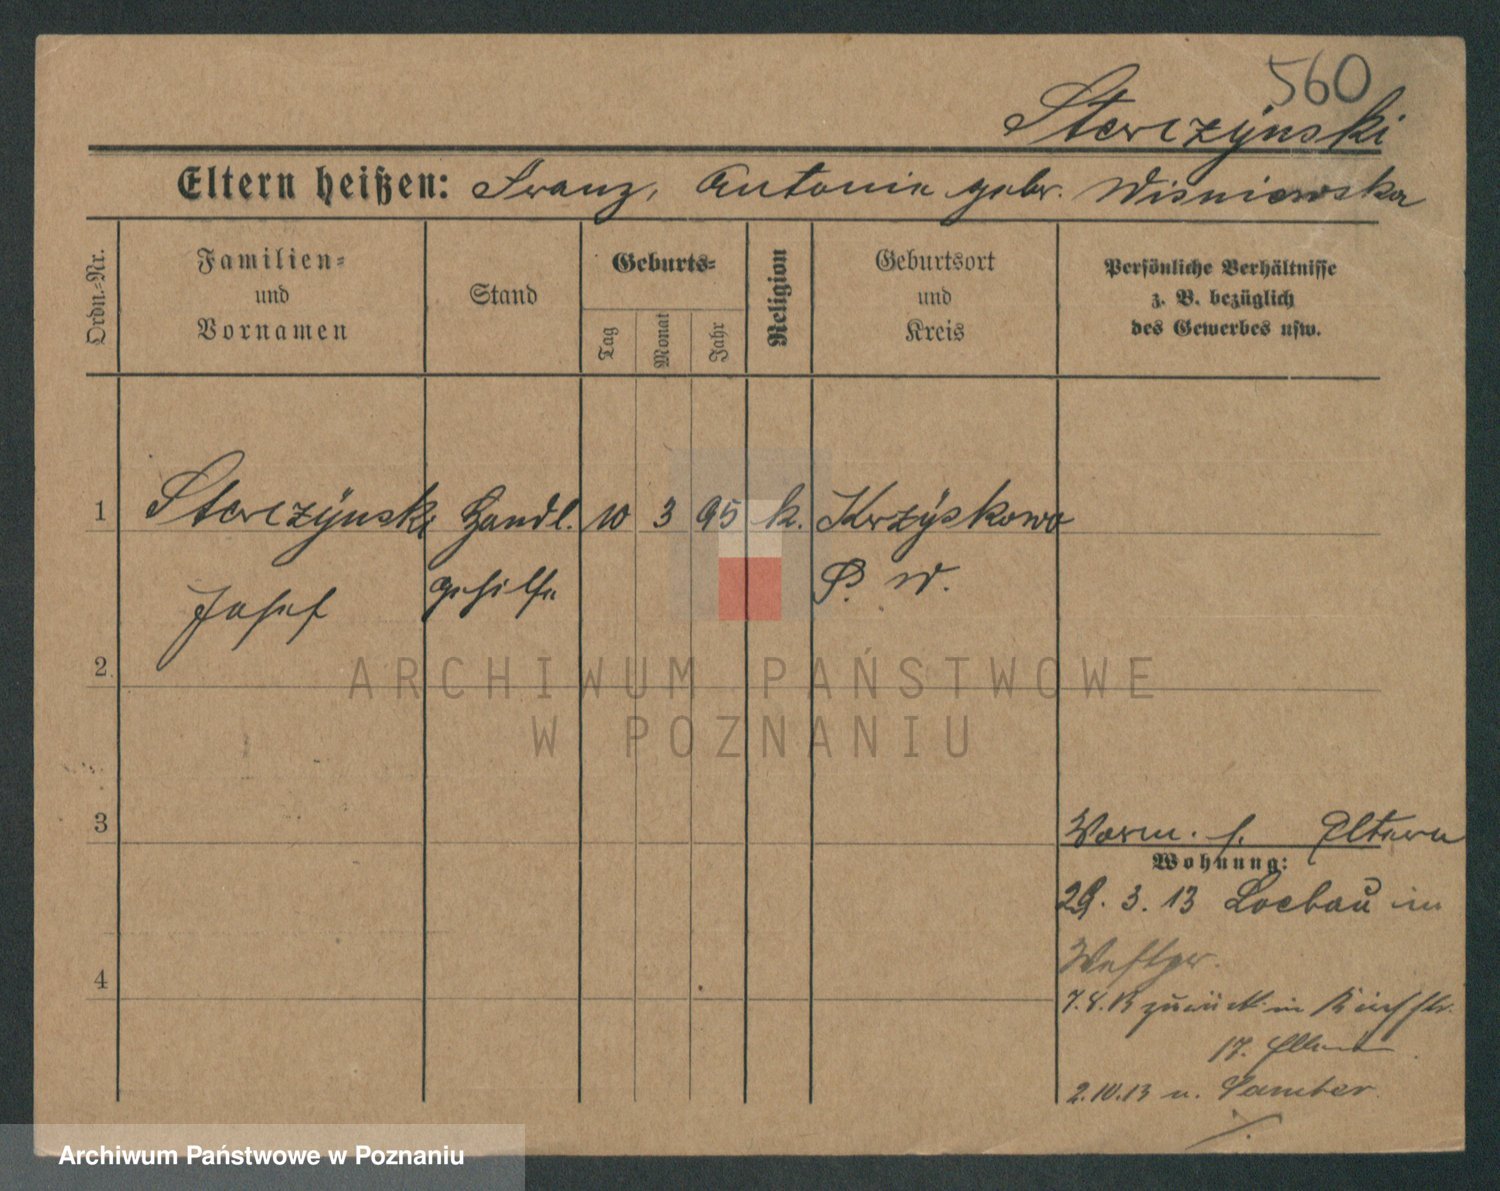 560
Sterczÿnski
Eltern heißen: Franz, Antonie gebr. Wisniewska
Ordn.-Nr.
Familien-
und
Vornamen
Stand
Geburts-
Tag
Monat
Jahr
Religion
Geburtsort
und
Kreis
Persönliche Verhältnisse
z. B. bezüglich
des Gewerbes usw.
1 Sterczÿnski Handl. 10 3 95 k. Krzÿskowo
Josef gehilfe P. W.
2
3
4
Vorm. s. Eltern
Wohnung:
29. 3. 13 Loebau in
Westpr.
7.8.13 zurück in
17. Eltern
2.10.13 n. Samter
ARCHIWUM PAŃSTWOWE
W POZNANIU
Archiwum Państwowe w Poznaniu